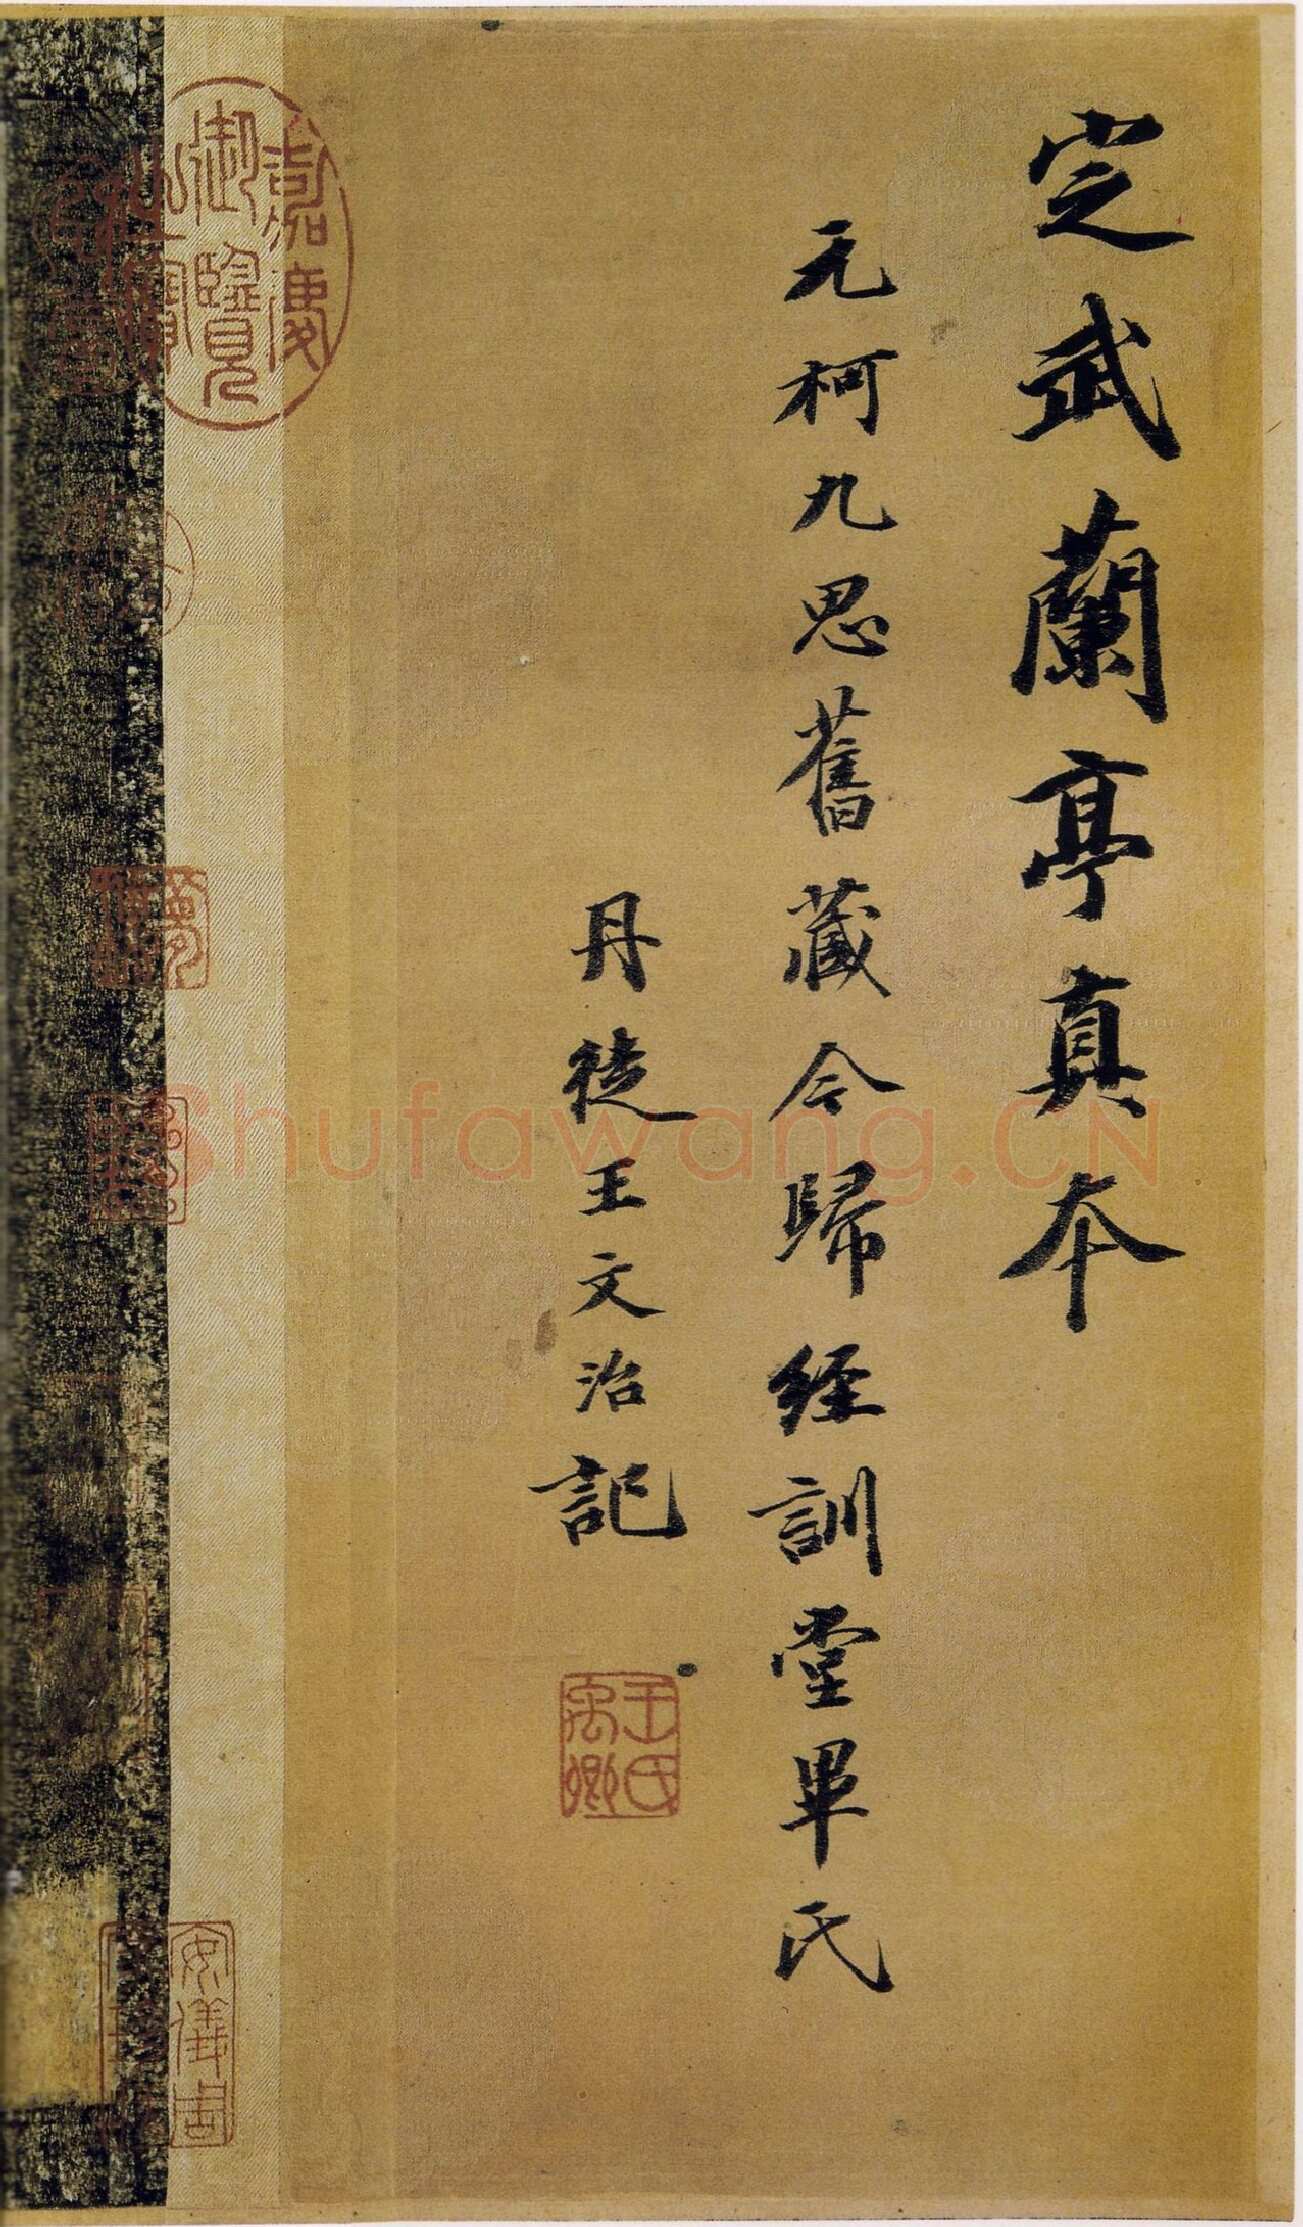 定武蘭亭真本
元柯九思舊藏今歸經訓堂畢氏
丹徒王文治記
王氏禹卿
嘉慶御覽
安儀周
Shufawang.CN